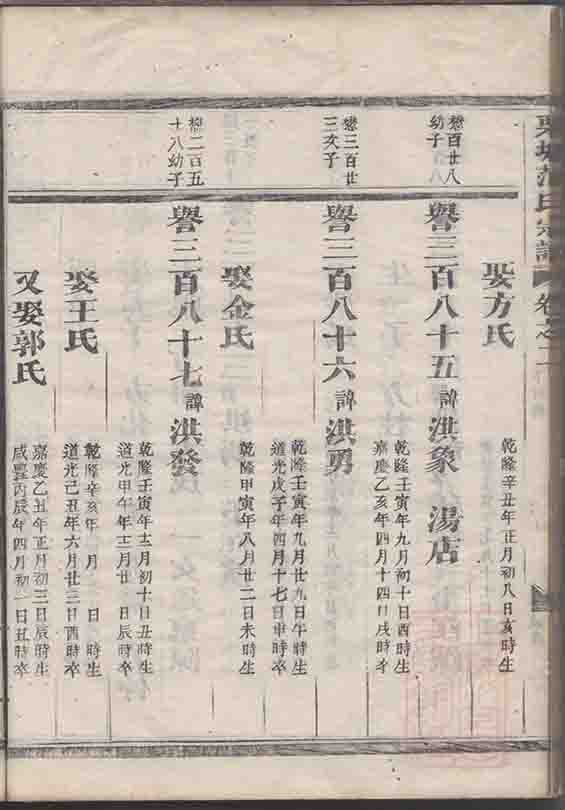 氏宗譜 卷之二
娶方氏
乾隆辛丑年正月初八日亥時生
懋百廿八
幼子
譽三百八十五 諱洪象 湯店
乾隆壬寅年九月初十日酉時生
嘉慶乙亥年四月十四日戌時卒
懋三百廿
三次子
譽三百八十六 諱洪勇
乾隆壬寅年九月廿九日午時生
道光戊子年四月十七日申時卒
娶金氏
乾隆甲寅年八月廿二日未時生
懋二百五
十八幼子
譽三百八十七 諱洪發
乾隆壬寅年十二月初十日丑時生
道光甲午年十二月廿一日辰時卒
娶王氏
乾隆辛亥年 月 日 時生
道光己丑年六月廿三日酉時卒
又娶郭氏
嘉慶乙丑年正月初三日辰時生
咸豐丙辰年四月初一日丑時卒